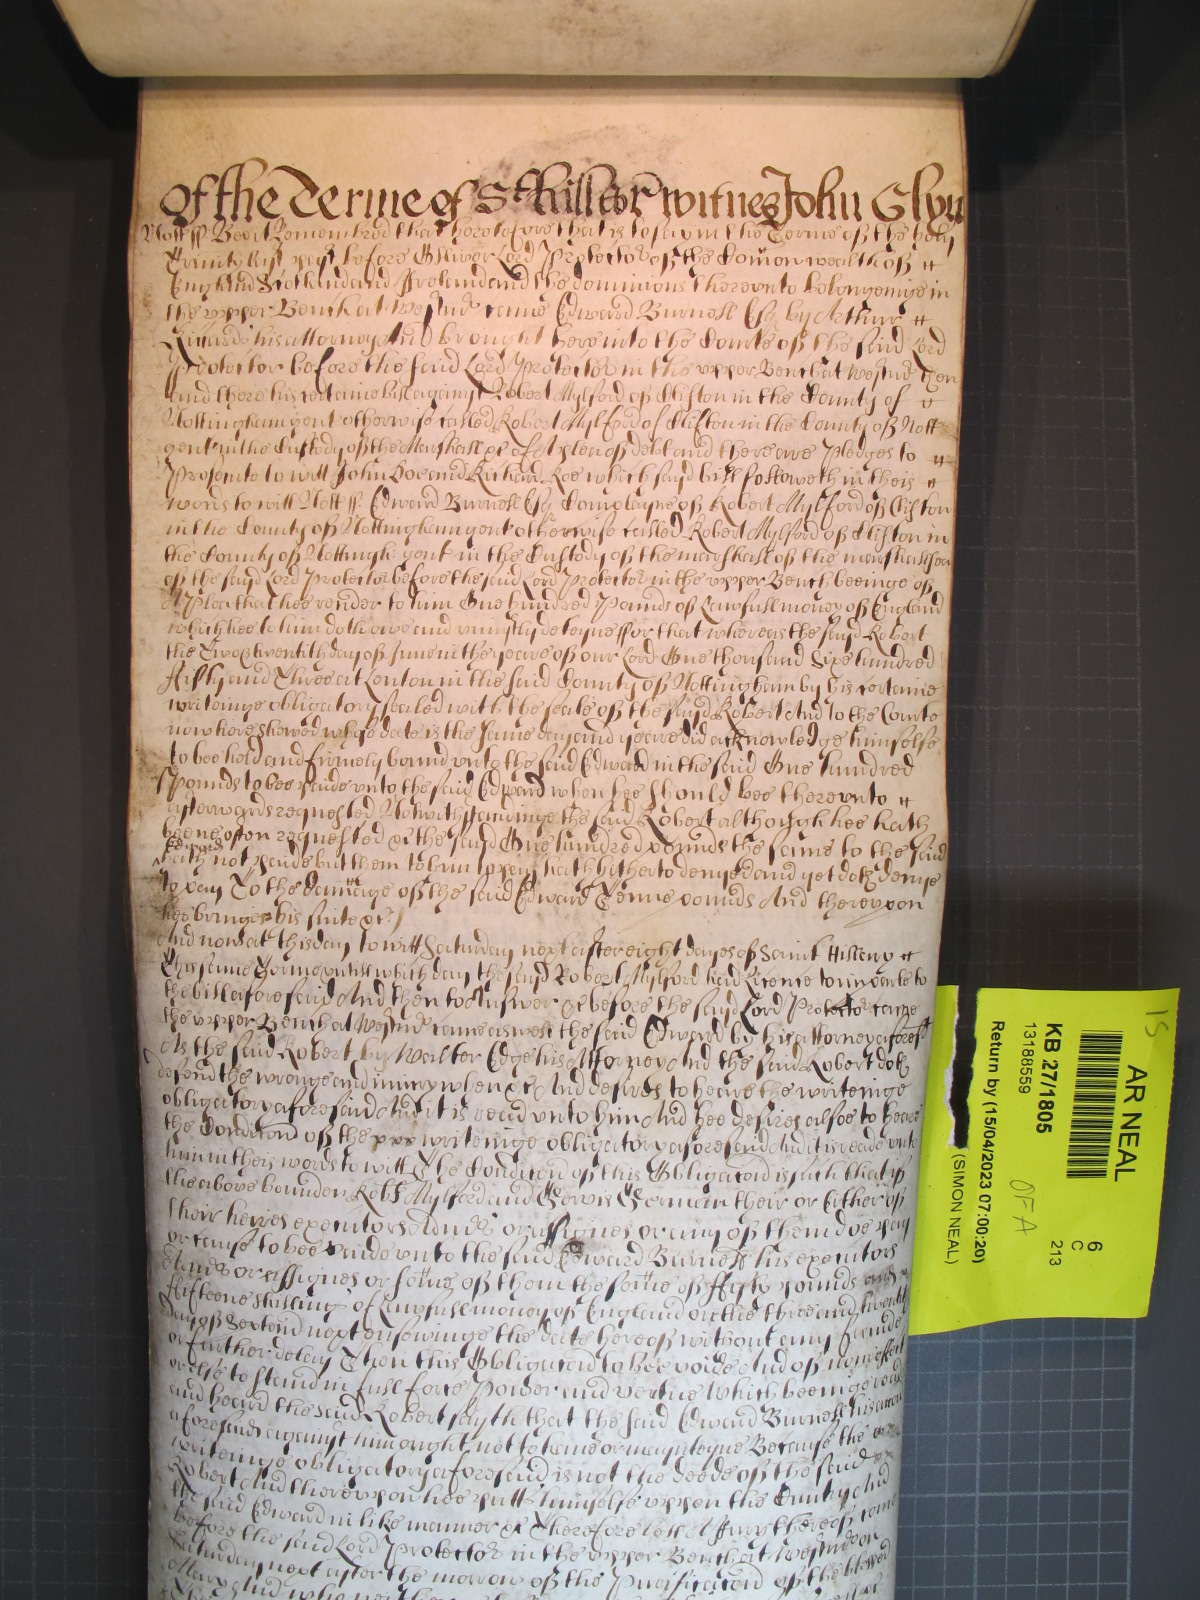 Of the Terme of St hillar witnes John Glyn
Nott ss Bee it Remembred that heretofore that is to say in the Terme of the holy
Trinity last past before Oliver Lord Protector of the Comon wealth of
England Scotland and Ireland and the dominions thereunto belongeinge in
the upper Bench at Westmr came Edward Burnell Esq by Arthur
his attorney And brought here into the Courte of the said Lord
Protector before the said Lord Protector in the upper Bench at Westmr then
and there his certaine bill against Robert Mylford of Clifton in the County of
Nottingham gent otherwise called Robert Mylford of Clifton in the County of Nott
gent in the Custody of the Marshall &c of A plea of debt and there are Pledges to
Prosecute to witt John Doe and Richard Roe which said bill followeth in theis
words to witt Nott ss Edward Burnell Esq Complaynes of Robert Mylford of Clifton
in the County of Nottingham gent otherwise called Robert Mylford of Clifton in
the County of Nottingh gent in the Custody of the marshall of the marshallsea
of the sayd Lord Protector before the said Lord Protector in the upper Bench beeinge of
A Plea that hee render to him One hundred Pounds of Lawfull money of England
which hee to him doth owe and uniustly deteyne ffor that whereas the sayd Robert
the Two & twentith day of June in the yeare of our Lord One thousand Sixe hundred
ffifty and Three at Lenton in the said County of Nottingham by his certaine
writeinge obligatory sealed with the seale of the sayd Robert And to the Courte
now here shewed whose date is the same day and yeare did acknowledge himselfe
to bee held and firmely bound unto the said Edward in the said One hundred
Pounds to bee paide unto the said Edward when hee should bee thereunto
afterwards requested Notwithstandinge the said Robert although hee hath
beene often requested &c the said One hundred pounds the same to the said
Edward
hath not paide but them to him to pay hath hitherto denyed and yet doth denye
to pay To the damage of the said Edward Tenne pounds And thereupon
hee bringes his suite &c
And now at this day to witt Saturday next after eight dayes of Saint Hillary
This same Terme untill which day the sayd Robert Mylford had Licence to imparle to
the bill aforesaid And then to Answer &c before the sayd Lord Protector
the upper Bench at Westmr came aswell the said Edward by his attorney aforesd
As the said Robert by Walter Edge his Attorney And the said Robert doth
defend the wronge and iniury when &c And desires to heare the writeinge
obligatory aforesaid And it is read unto him And hee desires alsoe to heare
the Condicon of the writeinge obligatory aforesaid And it is reade unto
him in theis words to witt The Condicon of this Obligacon is such that if
the above bounden Robt Mylford and Gervis German their or Either of
their heires executors Admrs or assignes or any of them doe pay
or cause to bee paide unto the said Edward Burnell his executors
Admrs or assignes or some of them the some of ffifty pounds and
ffifteene shillings of Lawfull money of England on the three and twentith
day of next ensueinge the date hereof without any fraude
or further delay Then this Obligacon to bee voide And of none effect
or else to stand in full force Power and vertue Which beeinge read
and heard the said Robert sayth that the said Edward Burnell his accon
aforesaid against him ought not to have or maynteyne Because the
writeinge obligatory aforesaid is not the deede of the said
Robert And thereupon hee putts himselfe uppon the Cuntry And
the said Edward in like manner &c Therefore Lett A Jury thereof come
before the said Lord Protector in the upper Bench at Westmr on
Saturday next after the morrow of the Purificacon of the blessed
Mary And who neither
AR NEAL
15
KB 27/1805
13188559
Return by (15/04/2023 07:00:20)
(SIMON NEAL)
OFA
6
C
213